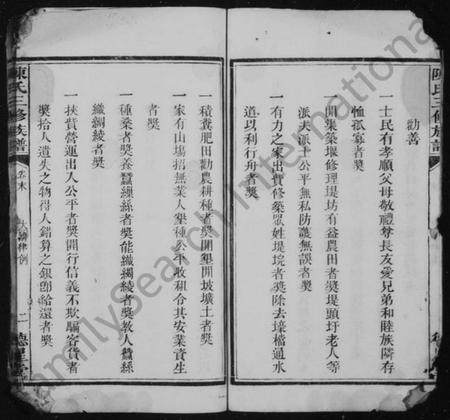 陳氏三修族譜
勸善
一士民有孝順父母敬禮尊長友愛兄弟和睦族隣存
恤孤寡者獎
一開集築堰修理堤坊有益農田者獎堤頭圩老人等
派夫派土公平無私防護無誤者獎
一有力之家出資修築眾姓堤垸者獎除去壕檔通水
道以利行舟者獎
一積糞肥田勸農耕種者獎開墾開坡壙土者獎
一家有山場招無業人墾種公平收租合其安業資生
者獎
一種桑者獎養蠶繅絲者獎能織綢綾者獎教人蠶絲
織綢綾者獎
一挾貲營運出人公平者獎開行信義不欺騙客貨者
獎拾人遺失之物得人錯算之銀卽給還者獎
陳氏三修族譜
卷末
律例
二
德星堂
FamilySearch International